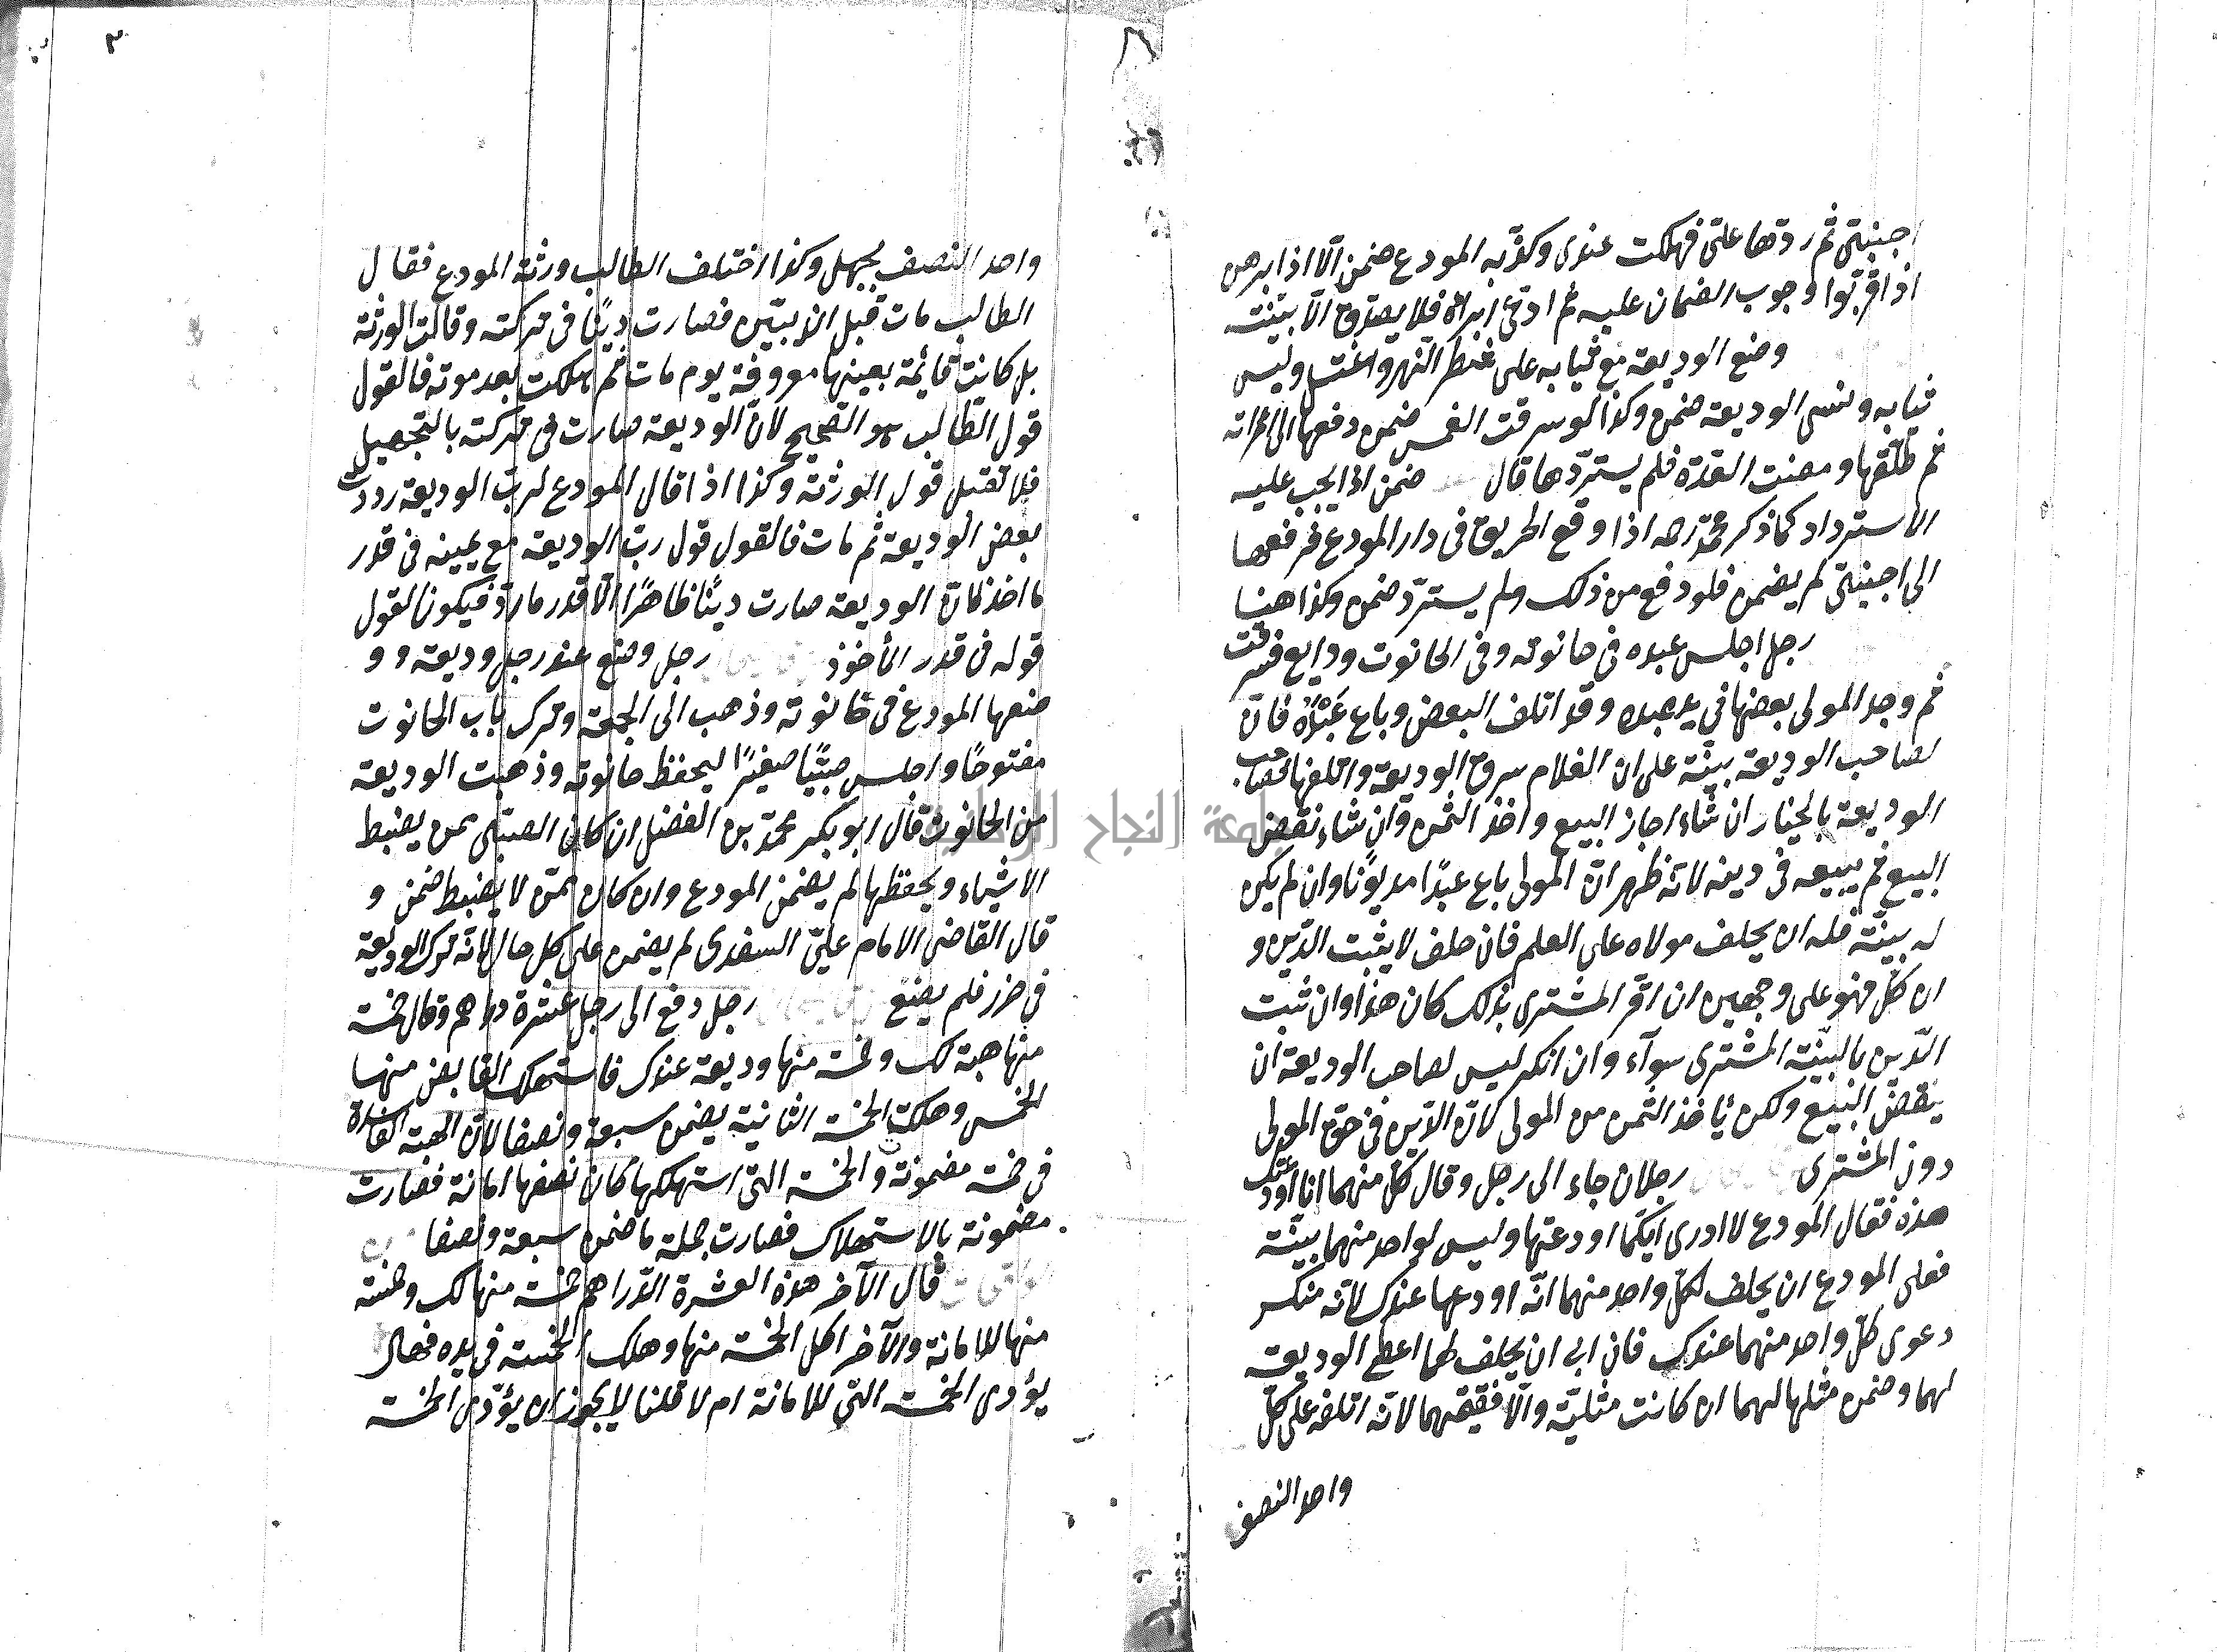 اجنبىّ ثم ردّها علىّ فهلكت عندى وكذّبه المودع ضمن الّا اذا برهن
اذ اقرّ بوجوب الضمان عليه ثم ادّعى ابراة فلا يصدّق الّا ببيّنته
وضع الوديعة مع ثيابه على شط النّهر واغتسل ولبس
ثيابه ونسى الوديعة ضمن وكذا لو سرقت ضمن دفعها الى امراته
ثم طلّقها ومضت العدّة فلم يستردّها قال ضمن اذ يجب عليه
الاسترداد كما ذكر محمّد رحه اذا وقع الحريق فى دار المودع فدفعها
الى اجنبىّ لم يضمن فلو دفع من ذلك ولم يستردّ ضمن وكذا هنا
رجل اجلس عبده فى حانوته وفى الحانوت ودايع فسرقت
ثم وجد المولى بعضها فى يد عبده وقد اتلف البعض وباع عَبْدَه فان
لصاحب الوديعة بيّنة على ان الغلام سرق الوديعة واتلفها فصاحب
الوديعة بالخيار ان شاء اجاز البيع واخذ الثمن وان شاء نقض
البيع ثم يبيعه فى دينه لانّه ظهر انّ المولى باع عبدًا مديونًا وان لم يكن
له بيّنة فله ان يحلف مولاه على العلم فان حلف لا يثبت الدّين و
ان نكل فهو على وجهين ان اقرّ المشترى بذلك كان هذا وان ثبت
الدّين بالبيّنة المشترى سوآء وان انكر ليس لصاحب الوديعة ان
ينقض البيع ولكن يأخذ الثمن من المولى لانّ الدّين فى حق المولى
دون المشترى رجلان جاء الى رجل وقال كلّ منهما انا اودعتك
هذه فقال المودع لا ادرى ايّكما اودعتها وليس لواحد منهما بيّنة
فعلى المودع ان يحلف لكلّ واحد منهما انّه اودعها عندك لانّه منكر
دعوى كلّ واحد منهما عندك فان ابى ان يحلف لهما اعطى الوديعة
لهما وضمن مثلها لهما ان كانت مثليّة والّا فقيمتهما لانّه اتلف على كلّ
واحد النصف
٣
واحد النصف بجهل وكذا اختلف الطالب ورثة المودع فقال
الطالب مات قبل ان يبيّن فصارت دينًا فى تركته وقالت الورثة
بل كانت قائمة بعينها معروفة يوم مات ثم هلكت بعد موته فالقول
قول الطّالب هو الصّحيح لانّ الوديعة صارت فى تركته بالتجهيل
فلا تقبل قول الورثة وكذا اذا قال المودع لربّ الوديعة رددت
بعض الوديعة ثم مات فالقول قول ربّ الوديعة مع يمينه فى قدر
ما اخذ لانّ الوديعة صارت دينًا ظاهرًا الّا قدر ما ردّ فيكون القول
قوله فى قدر المأخوذ رجل وضع عند رجل وديعة و و
ضعها المودع فى حانوته وذهب الى الجمعة وترك باب الحانوت
مفتوحًا واجلس صبيًّا صغيرًا ليحفظ حانوته وذهبت الوديعة
من الحانوت قال ابو بكر محمّد بن الفضل ان كان الصبىّ ممن يضبط
الاشياء ويحفظها لم يضمن المودع وان كان ممّن لا يضبط ضمن و
قال القاضى الامام علىّ السغدى لم يضمن على كل حال لانّه ترك الوديعة
فى حرز فلم يضع رجل دفع الى رجل عشرة دراهم وقال خمسة
منها هبة لك وخمسة منها وديعة عندك فاستهلك القابض منها
الخمس وهلكت الخمسة الثانية يضمن سبعة ونصفا لانّ الهبة الفاسدة
فى خمسة مضمونة والخمسة التى استهلكها كان نصفها امانة فصارت
مضمونة بالاستهلاك فصارت جملة ما ضمن سبعة ونصفا
قال الآخر هذه العشرة الدّراهم خمسة منها لك وخمسة
منها للامانة والآخر اكل الخمسة منها وهلك الخمسة فى يده فهل
يؤدى الخمسة التى للامانة ام لا قلنا لا يجوز ان يؤدّى الخمسة
جامعة النجاح الوطنية